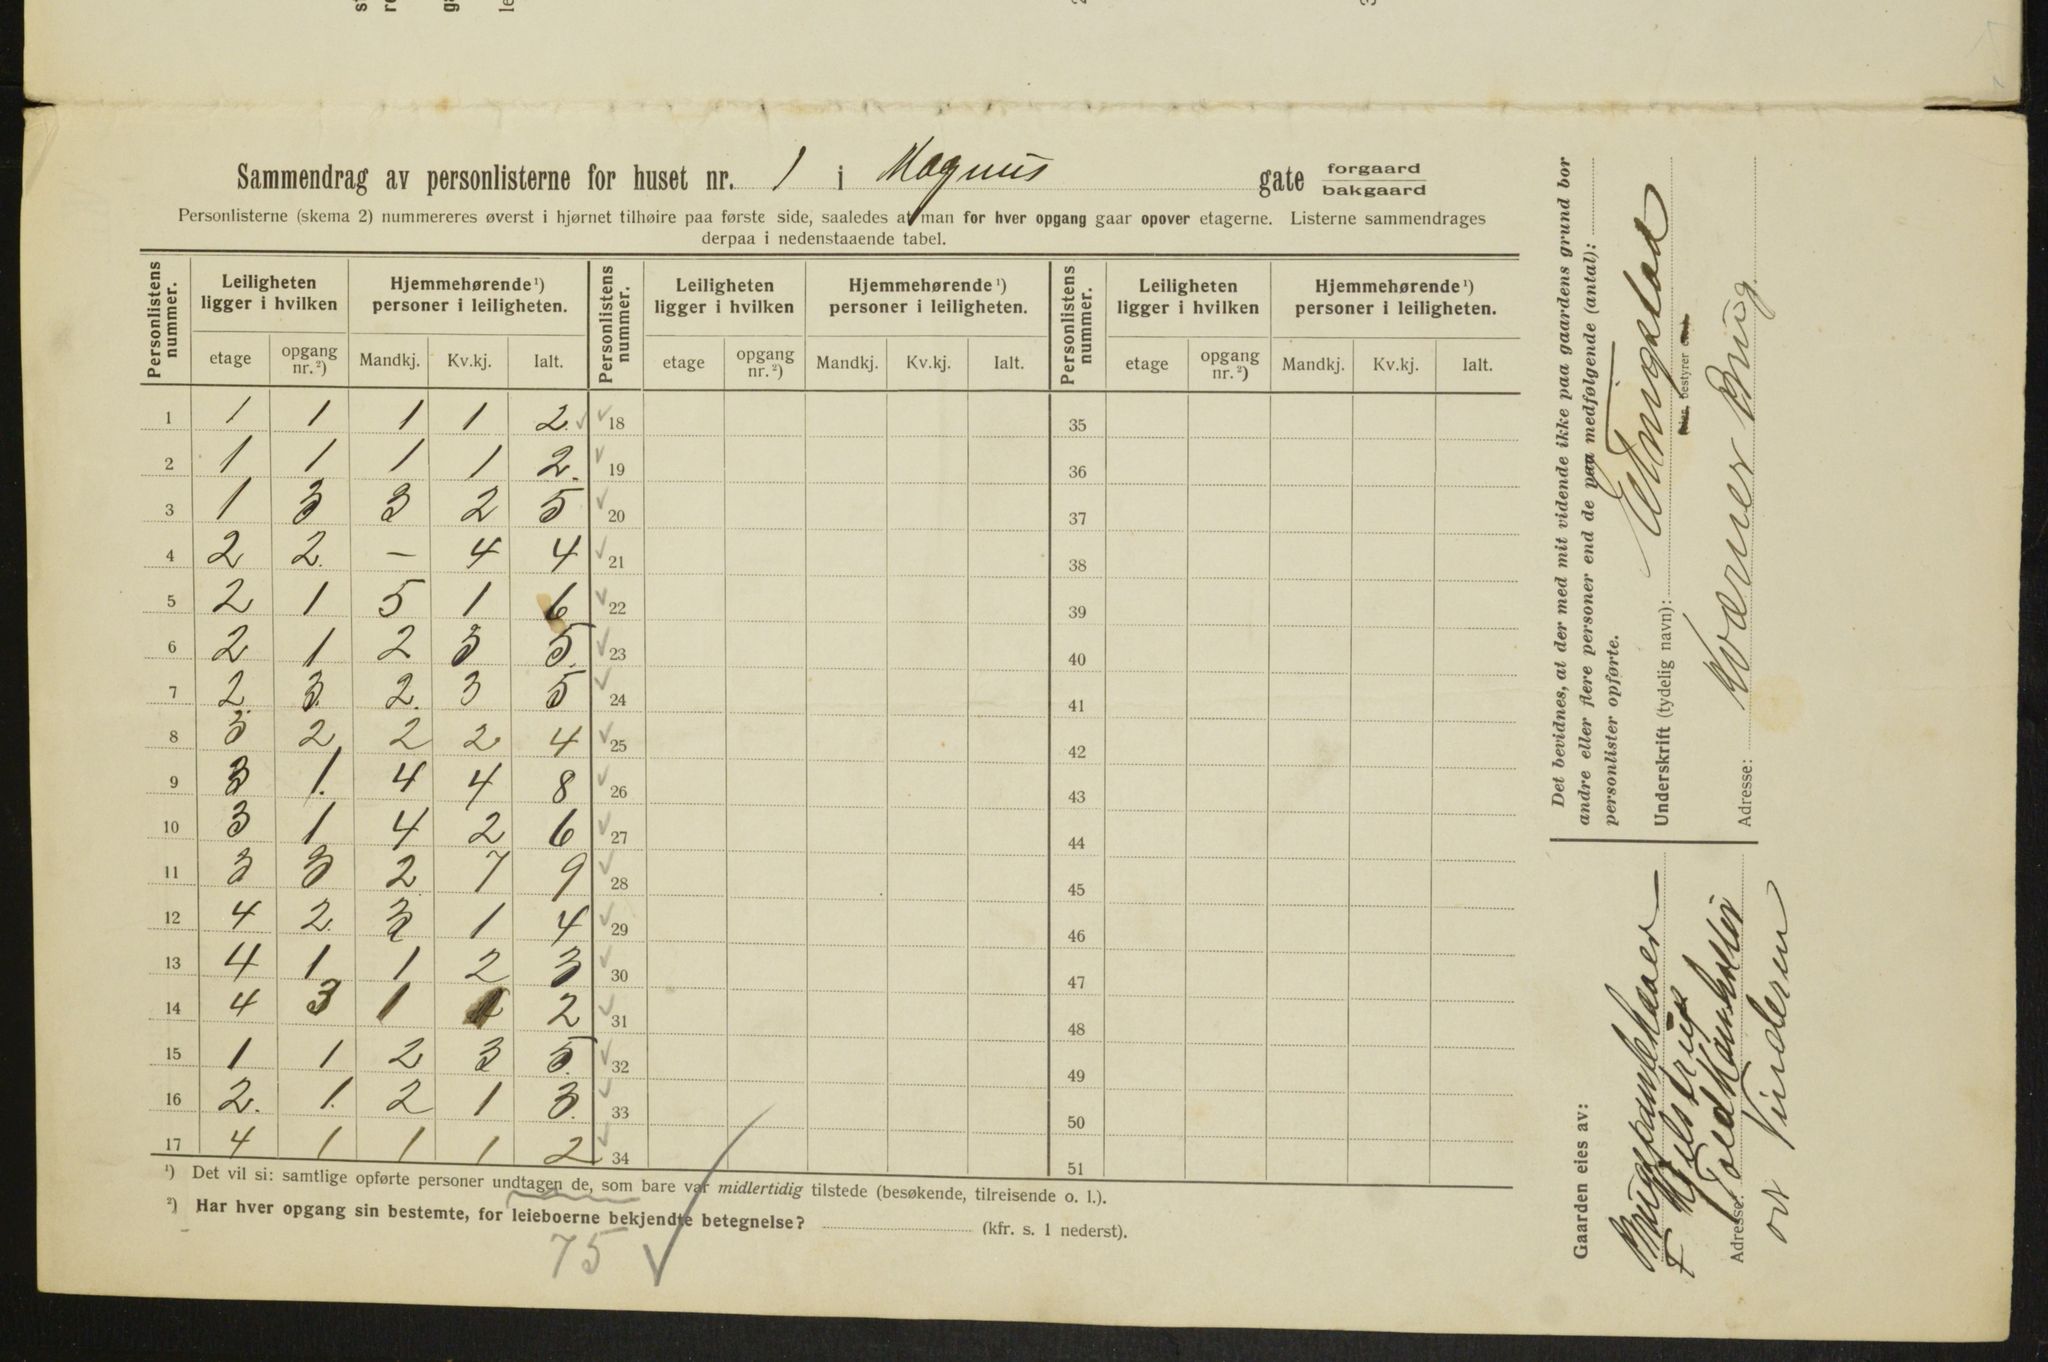 Sammendrag av personlisterne for huset nr. 1 i Magnus gate forgaard bakgaard
Personlisterne (skema 2) nummereres øverst i hjørnet tilhøire paa første side, saaledes at man for hver opgang gaar opover etagerne. Listerne sammendrages
derpaa i nedenstaaende tabel.
Personlistens nummer. Leiligheten ligger i hvilken Hjemmehørende ¹) personer i leiligheten. Personlistens nummer. Leiligheten ligger i hvilken Hjemmehørende ¹) personer i leiligheten. Personlistens nummer. Leiligheten ligger i hvilken Hjemmehørende ¹) personer i leiligheten.
etage opgang nr. ²) Mandkj. Kv.kj. Ialt. etage opgang nr. ²) Mandkj. Kv.kj. Ialt. etage opgang nr. ²) Mandkj. Kv.kj. Ialt.
1 1 1 1 1 2 18 35
2 1 1 1 1 2 19 36
3 1 3 3 2 5 20 37
4 2 2 – 4 4 21 38
5 2 1 5 1 6 22 39
6 2 1 2 3 5 23 40
7 2 3 2 3 5 24 41
8 3 2 2 2 4 25 42
9 3 1 4 4 8 26 43
10 3 1 4 2 6 27 44
11 3 3 2 7 9 28 45
12 4 2 3 1 4 29 46
13 4 1 1 2 3 30 47
14 4 3 1 1 2 31 48
15 1 1 2 3 5 32 49
16 2 1 2 1 3 33 50
17 4 1 1 1 2 34 51
¹) Det vil si: samtlige opførte personer undtagen de, som bare var midlertidig tilstede (besøkende, tilreisende o. l.).
²) Har hver opgang sin bestemte, for leieboerne bekjendte betegnelse? (kfr. s. 1 nederst).
75
Det bevidnes, at der med mit vidende ikke paa gaardens grund bor
andre eller flere personer end de paa medfølgende (antal):
personlister opførte.
Underskrift (tydelig navn):
bestyrer
Adresse: Kværner Brug
Gaarden eies av:
Adresse:
Vinderen